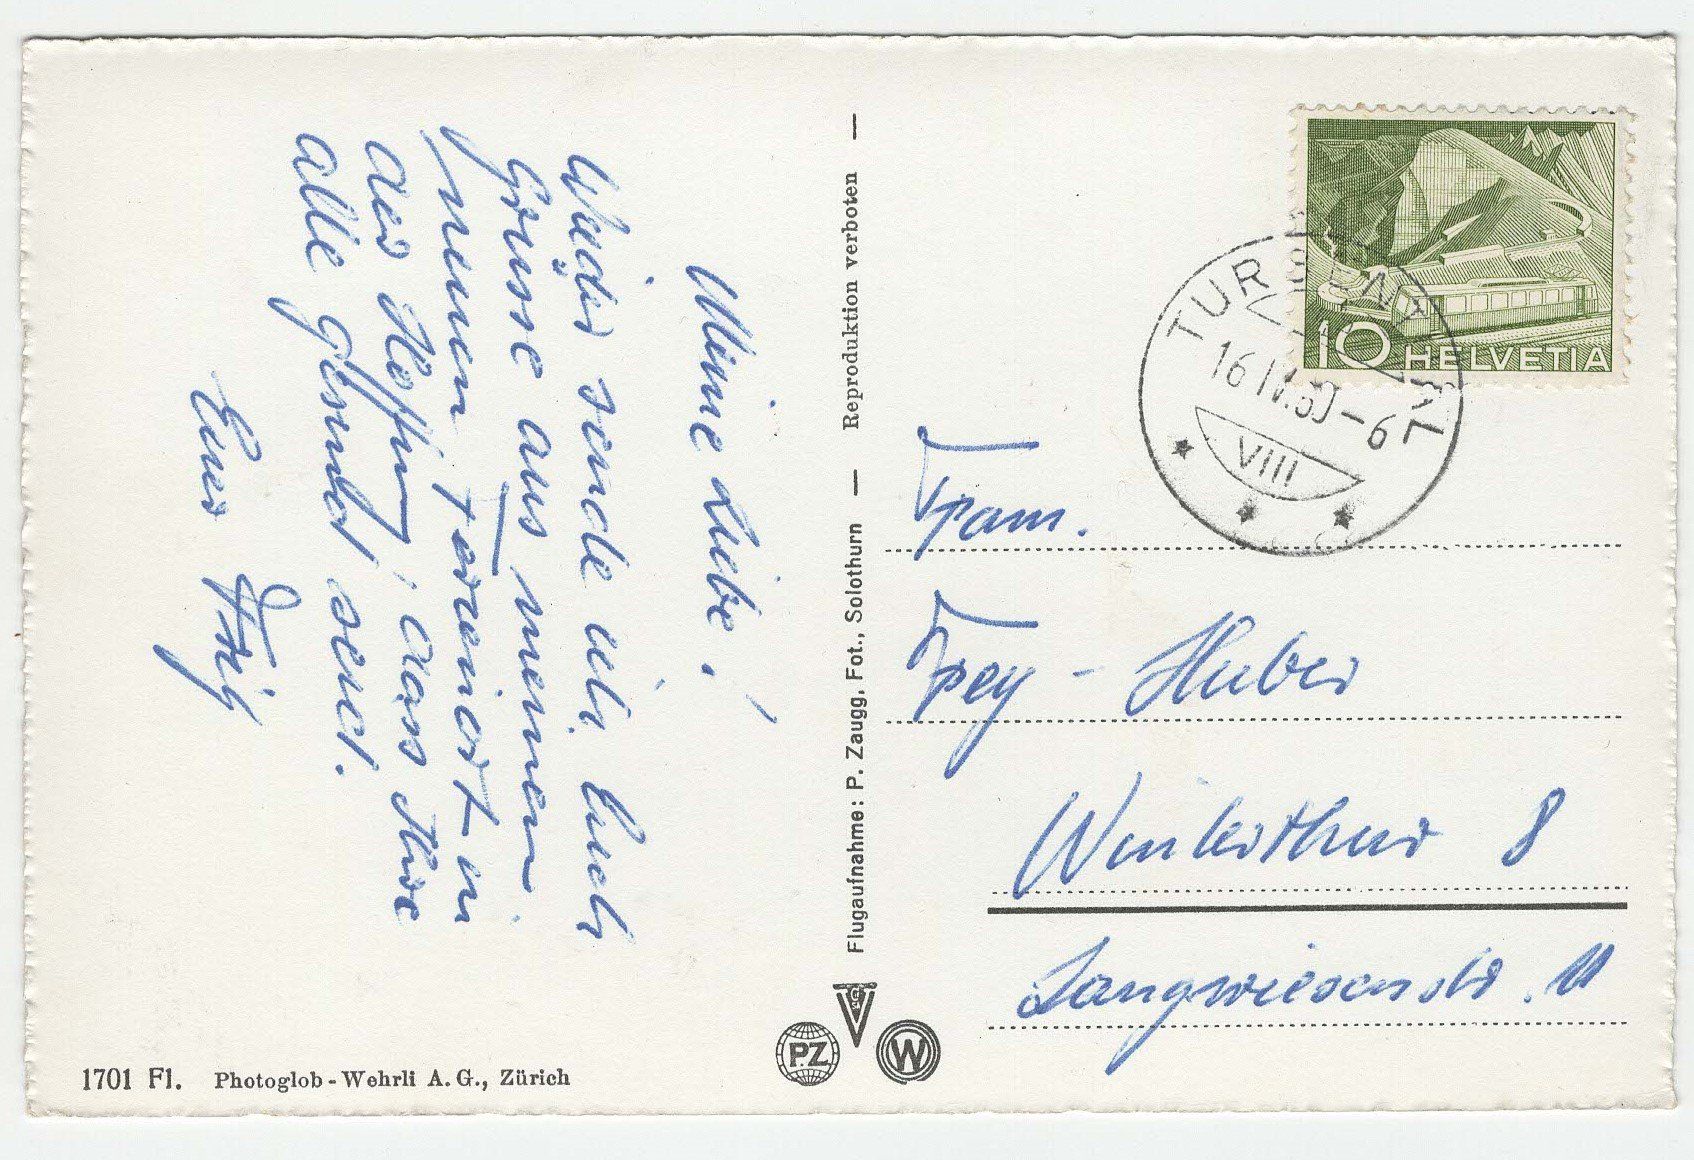 Meine Liebe!
Wieder sende ich Euch
Grüsse aus meinem
neuen Ferienort in
der Hoffnung, dass Ihr
alle gesund seid.
Euer
Reproduktion verboten
Flugaufnahme: P. Zaugg, Fot., Solothurn
1701 Fl. Photoglob-Wehrli A.G., Zürich
PZ
W
10 HELVETIA
TURBENTHAL
16.IV.60-6
VIII
Fam.
Frey-Huber
Winterthur 8
Langwiesenstr. 11